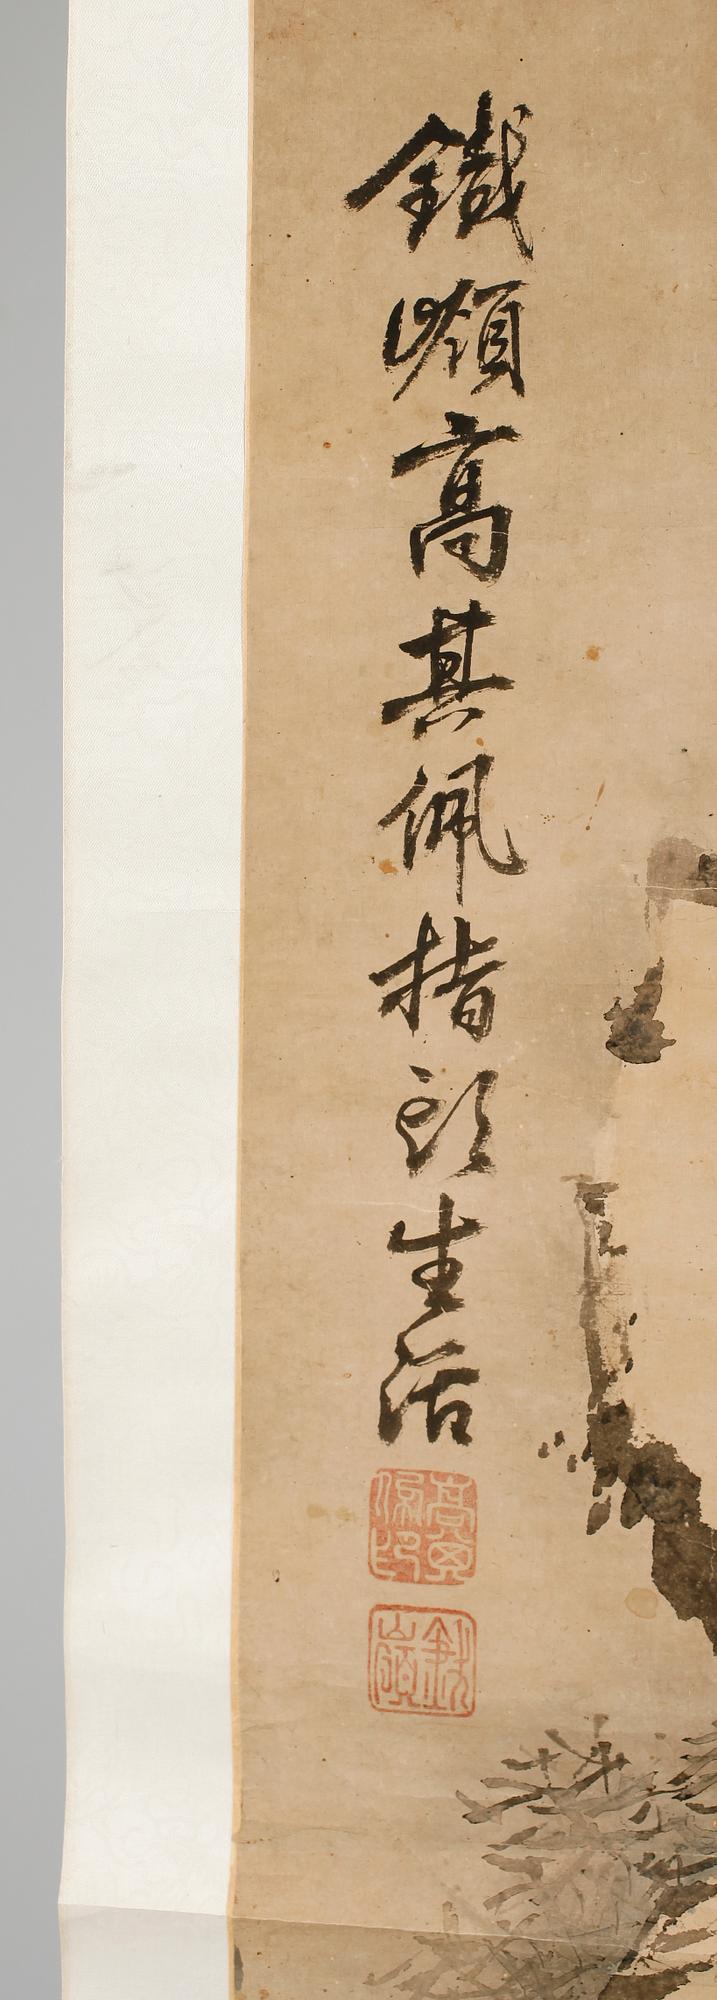 鐵嶺高其佩指頭生活
高其佩印
鐵嶺